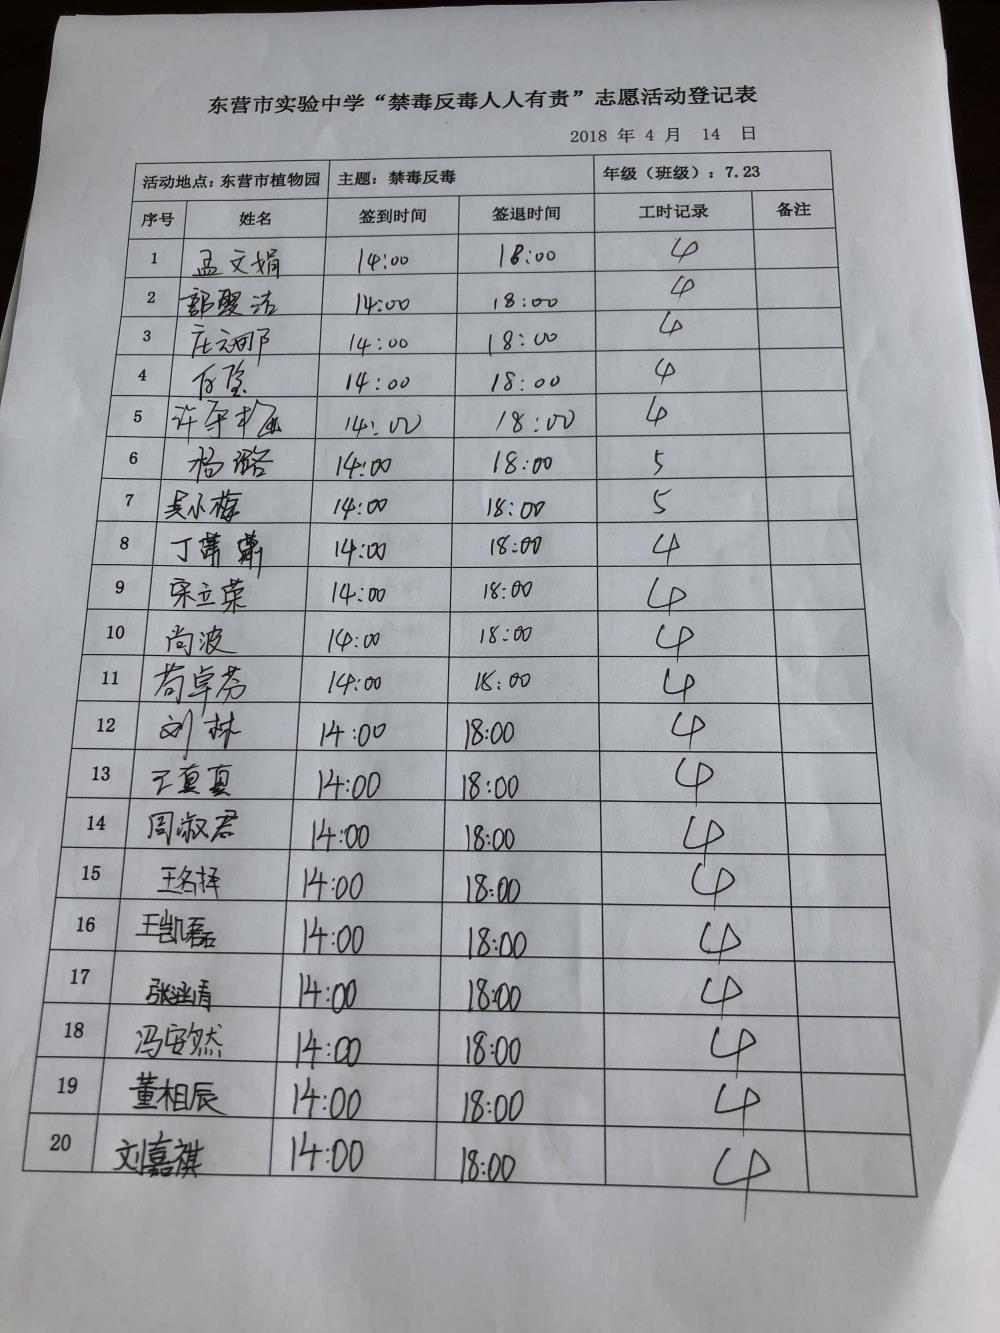 东营市实验中学“禁毒反毒人人有责”志愿活动登记表
2018 年 4 月 14 日
活动地点：东营市植物园 主题：禁毒反毒 年级（班级）：7.23
序号 姓名 签到时间 签退时间 工时记录 备注
1 孟文娟 14:00 18:00 4
2 14:00 18:00 4
3 14:00 18:00 4
4 14:00 18:00 4
5 许 14:00 18:00 4
6 杨璐 14:00 18:00 5
7 吴小梅 14:00 18:00 5
8 丁 14:00 18:00 4
9 宋立荣 14:00 18:00 4
10 尚波 14:00 18:00 4
11 苟卓芬 14:00 18:00 4
12 刘林 14:00 18:00 4
13 王真真 14:00 18:00 4
14 周淑君 14:00 18:00 4
15 王名择 14:00 18:00 4
16 王凯磊 14:00 18:00 4
17 张涵清 14:00 18:00 4
18 冯安然 14:00 18:00 4
19 董相辰 14:00 18:00 4
20 刘嘉祺 14:00 18:00 4